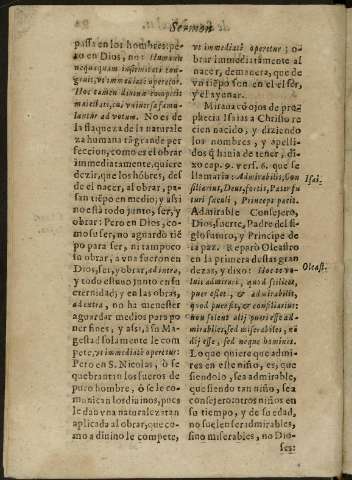 Sermon
passa en los hombres: pe-
ro en Dios, no: Humanæ
nequaquam infirmitati con-
gruit, vt immediatè operetur.
Hoc tamen diuinæ competit
maiestati, cui vniuersa famu-
lantur ad votum. No es de
la flaqueza de la naturale
za humana tã grande per
feccion, como es el obrar
immediatamente, quiere
dezir, que los hõbres, des
de el nacer, al obrar, pas-
san tiẽpo en medio; y assi
no està todo junto, ser, y
obrar: Pero en Dios, co-
mo su ser, no aguardò tiẽ
po para ser, ni tampoco
su obrar, a vna fueron en
Dios, ser, y obrar, ad intra,
y todo estuuo junto en su
eternidad; y en las obras,
ad extra, no ha menester
aguardar medios para po
ner fines, y assi, a su Ma-
gestad solamente le com
pete, vt immediatè operetur:
Pero en S. Nicolas, ò se
quebrantan los fueros de
puro hombre, ò se le co-
munican los diuinos, pues
le dàn vna naturaleza tan
aplicada al obrar, que co-
mo a diuino le compete,
vt immediatè operetur; o-
brar immediatamente al
nacer, de manera, que de
vn tiẽpo son en el el ser,
y el ayunar.
Miraua cõ ojos de pro-
phecia Isaias a Christo re
cien nacido, y diziendo
los nombres, y apelli-
dos q̃ hauia de tener, di-
xo cap. 9. vers. 6. que se
llamaria: Admirabilis, Con
siliarius, Deus, fortis, Pater fu
turi sæculi, Princeps pacis.
Admirable Consejero,
Dios, fuerte, Padre del si-
glo futuro, y Principe de
la paz. Reparò Oleastro
en la primera destas gran
dezas, y dixo: Hoc te vo-
luit admirari, quod scilicet,
puer esset, & admirabilis,
quod puer sit, & consiliarius:
non solent alij pueri esse ad-
mirabiles, sed miserabiles, nõ
dij esse, sed neque hominis.
Lo que quiere que admi-
res en este niño, es; que
siendolo, sea admirable,
que siendo tan niño, sea
consejero: otros niños en
su tiempo, y de su edad,
no suelen ser admirables,
sino miserables, no Dio-
ses:
Isai.
Oleast.